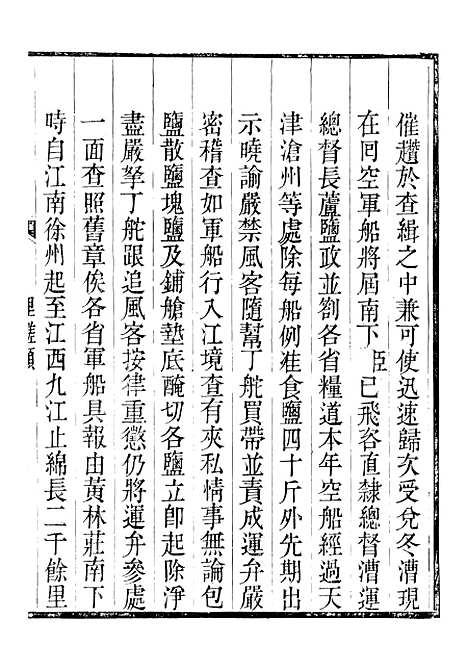 催趲於查緝之中兼可使迅速歸次受兌冬漕現
在回空軍船將屆南下臣已飛咨直隸總督漕運
總督長蘆鹽政並劄各省糧道本年空船經過天
津滄州等處除每船例准食鹽四十斤外先期出
示曉諭嚴禁風客隨幫丁舵買帶並責成運弁嚴
密稽查如軍船行入江境查有夾私情事無論包
鹽散鹽塊鹽及鋪艙墊底醃切各鹽立卽起除淨
盡嚴拏丁舵跟追風客按律重懲仍將運弁參處
一面查照舊章俟各省軍船具報由黃林莊南下
時自江南徐州起至江西九江止綿長二千餘里